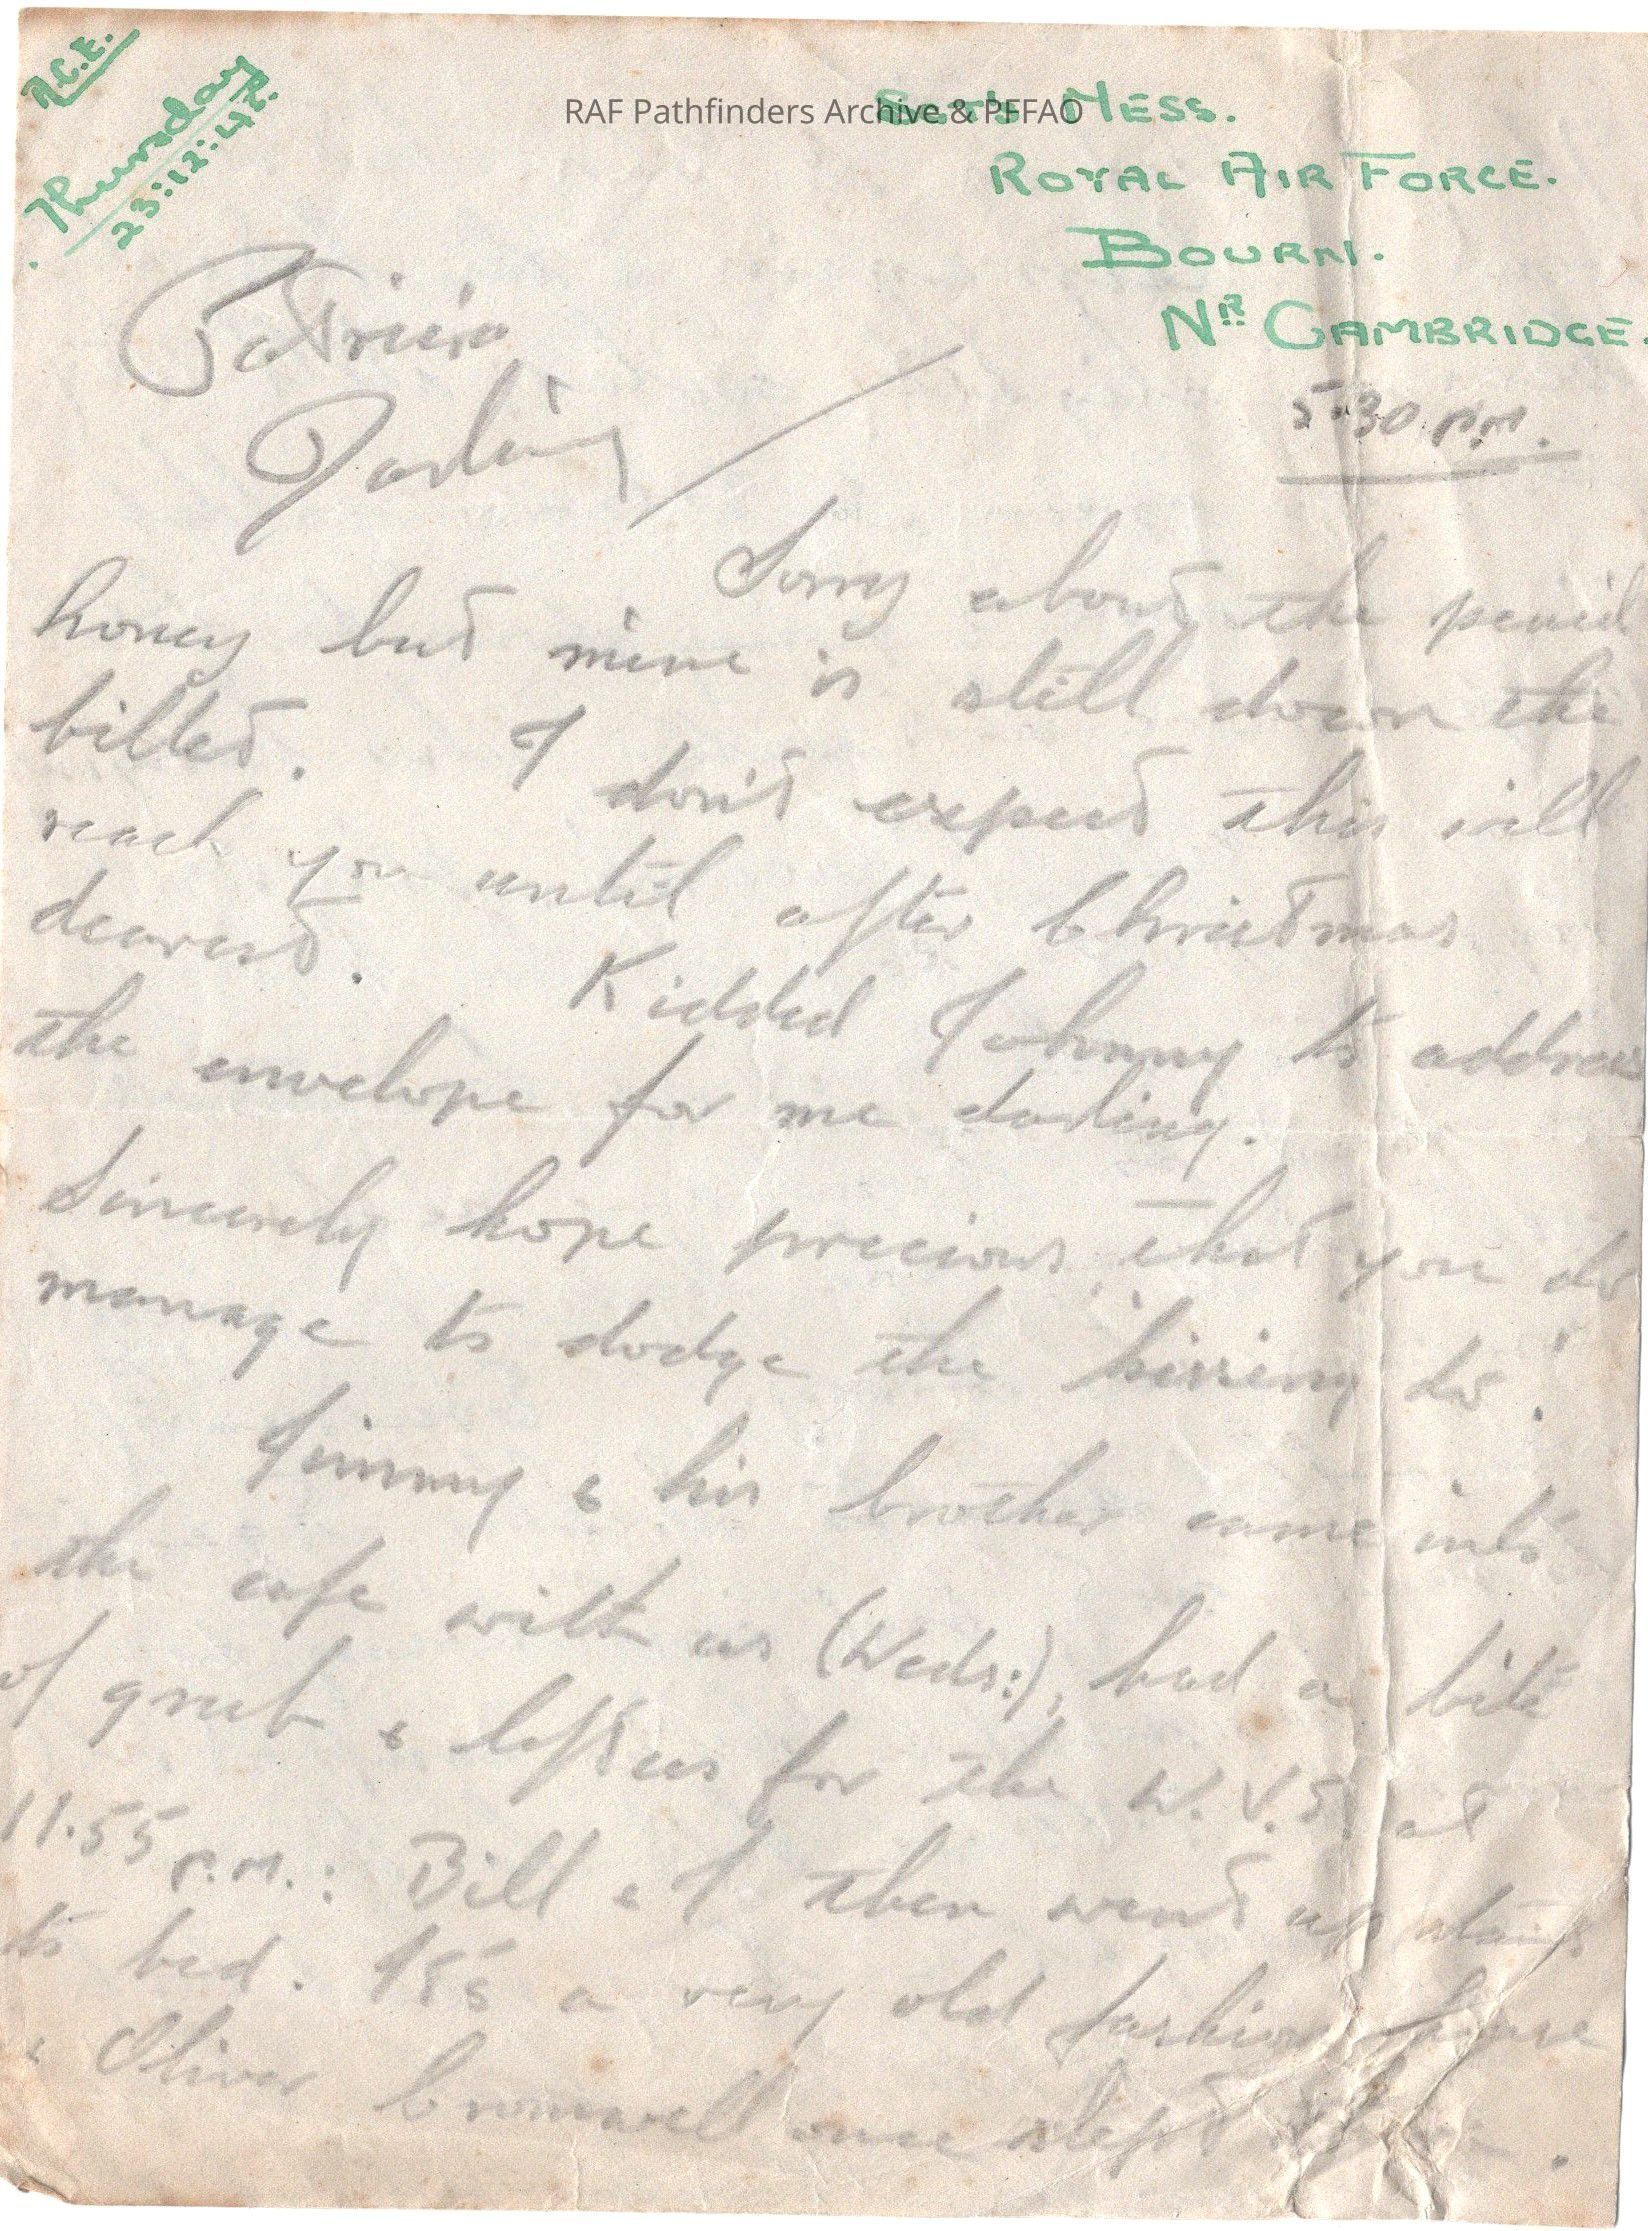 A.C.E.
Thursday
23:12:42.
RAF Pathfinders Archive & PFFAO
Sgt's Mess.
Royal Air Force.
Bourn.
Nr Cambridge.
5.30 p.m.
Patricia
Darling
Sorry about the pencil
honey but mine is still down the
billet. I don't expect this will
reach you until after Christmas
dearest. Kidded Johnny to address
the envelope for me darling.
Sincerely hope precious that you do
manage to dodge the "kissing do".
Jimmy & his brother came into
the cafe with us (Weds:), had a bite
of grub & left us for the W.V.S. at
11.55 p.m.: Bill & I then went up stairs
to bed. It's a very old fashion house
& Oliver Cromwell once slept there.